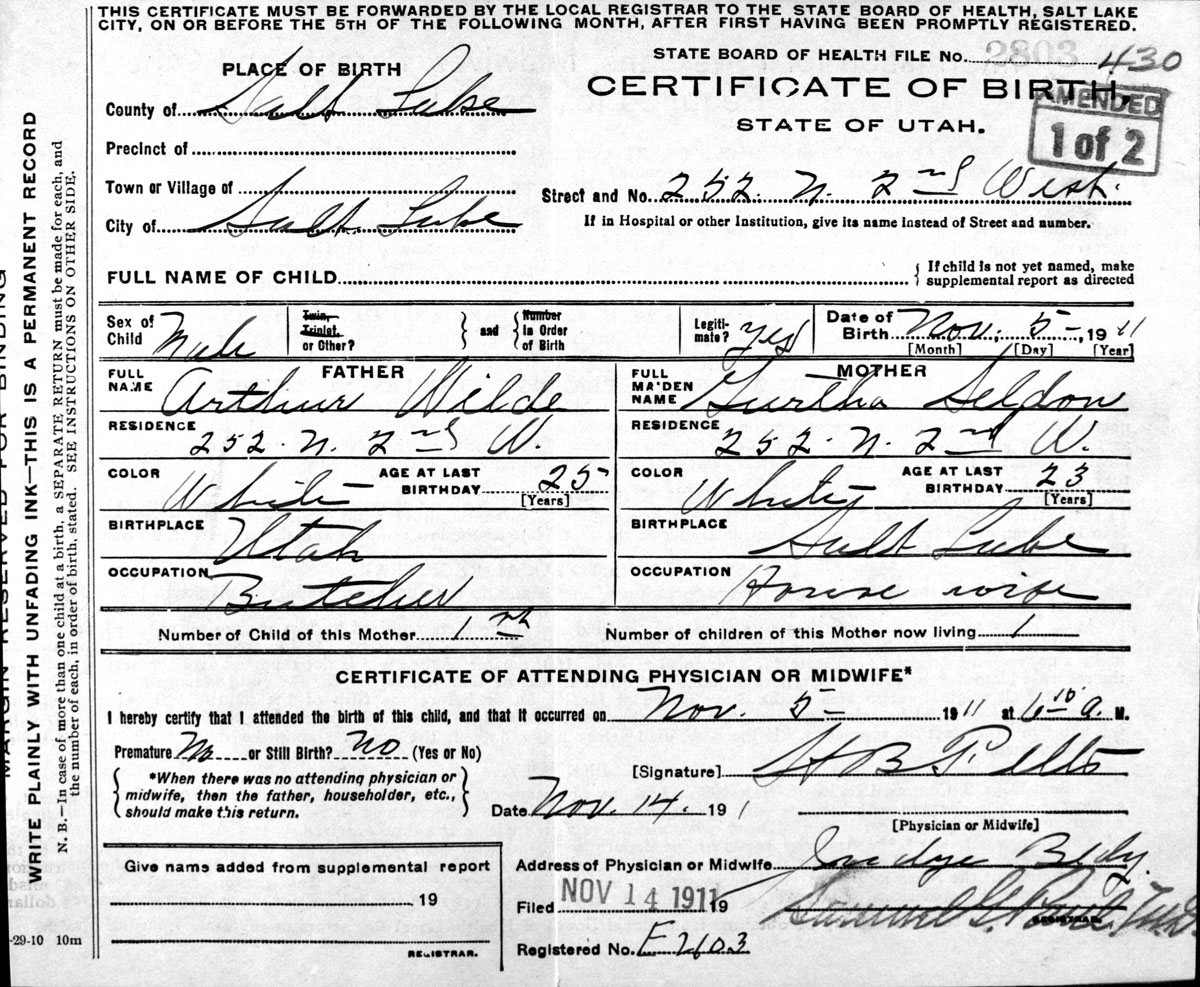 THIS CERTIFICATE MUST BE FORWARDED BY THE LOCAL REGISTRAR TO THE STATE BOARD OF HEALTH, SALT LAKE
CITY, ON OR BEFORE THE 5TH OF THE FOLLOWING MONTH, AFTER FIRST HAVING BEEN PROMPTLY REGISTERED.
STATE BOARD OF HEALTH FILE No. 2803 430
PLACE OF BIRTH
CERTIFICATE OF BIRTH,
AMENDED
1 of 2
County of Salt Lake
STATE OF UTAH.
Precinct of
Town or Village of
Street and No. 252. N. 2nd West.
City of Salt Lake
If in Hospital or other Institution, give its name instead of Street and number.
FULL NAME OF CHILD
If child is not yet named, make
supplemental report as directed
Sex of Child Male
Twin, Triplet, or Other?
and
Number in Order of Birth
Legiti-mate? Yes
Date of Birth Nov. 5 - 1911
[Month] [Day] [Year]
FATHER
FULL NAME Arthur Wilde
MOTHER
FULL MAIDEN NAME Gurtha Seldon
RESIDENCE 252. N. 2nd W.
RESIDENCE 252. N. 2nd W.
COLOR White
AGE AT LAST BIRTHDAY 25
[Years]
COLOR White
AGE AT LAST BIRTHDAY 23
[Years]
BIRTHPLACE Utah
BIRTHPLACE Salt Lake
OCCUPATION Butcher
OCCUPATION House wife
Number of Child of this Mother 1
Number of children of this Mother now living 1
CERTIFICATE OF ATTENDING PHYSICIAN OR MIDWIFE*
I hereby certify that I attended the birth of this child, and that it occurred on Nov. 5 - 1911 at 6 10 a. M.
Premature No or Still Birth? No (Yes or No)
*When there was no attending physician or
midwife, then the father, householder, etc.,
should make this return.
[Signature] H B
Date Nov. 14. 191
[Physician or Midwife]
Give name added from supplemental report
19
REGISTRAR.
Address of Physician or Midwife Judge Bldg
Filed NOV 14 1911 19
Samuel G.
REGISTRAR.
Registered No. E2603
-29-10 10m
MARGIN RESERVED FOR BINDING
WRITE PLAINLY WITH UNFADING INK—THIS IS A PERMANENT RECORD
N. B.—In case of more than one child at a birth, a SEPARATE RETURN must be made for each, and
the number of each, in order of birth, stated. SEE INSTRUCTIONS ON OTHER SIDE.